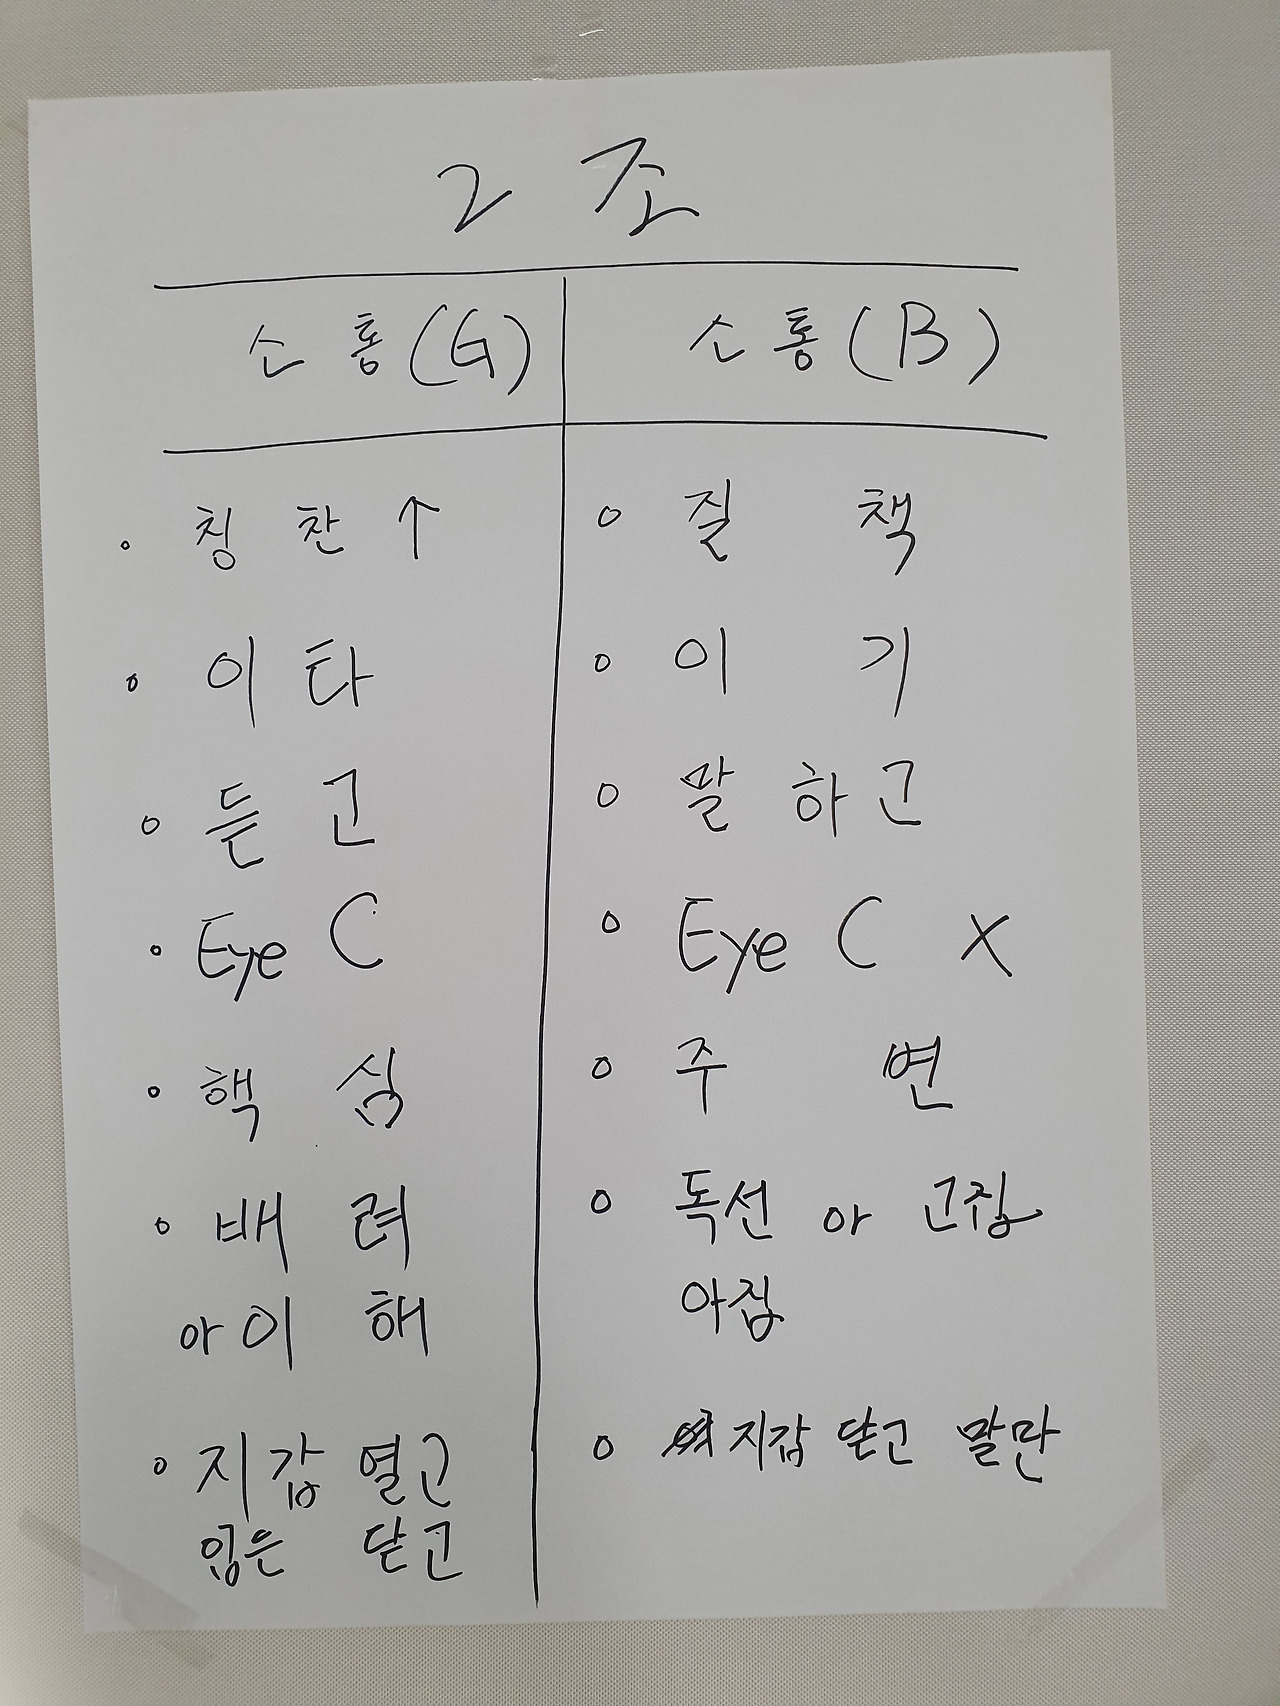 2 조
소통(G)
소통(B)
◦ 칭찬↑
◦ 질책
◦ 이타
◦ 이기
◦ 듣고
◦ 말하고
◦ Eye C
◦ Eye C X
◦ 핵심
◦ 주변
◦ 배려
아이해
◦ 독선 아 고집
아집
◦ 지갑 열고
입은 닫고
◦ 지갑 닫고 말만